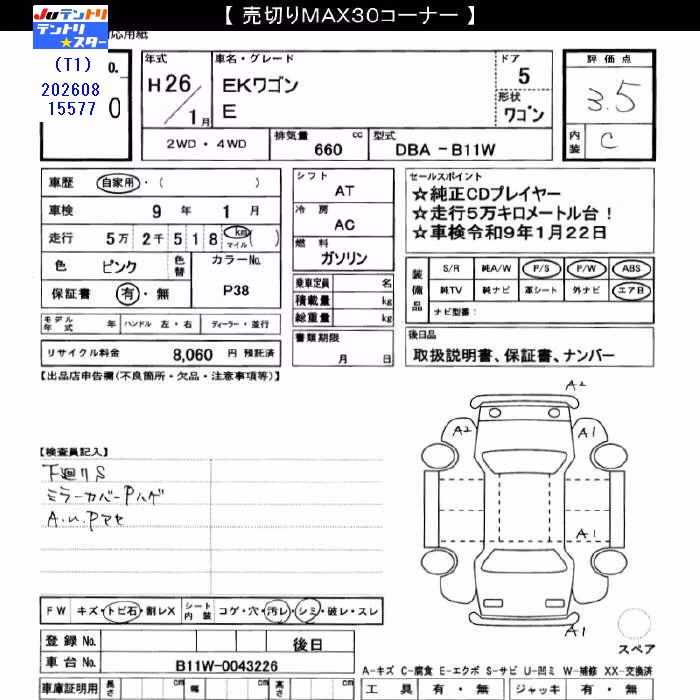 【 売切りMAX30コーナー 】
Juテントリ
テントリ
★スター
応用紙
(T1)
202608
15577
0.
0
年式
H26
1月
車名・グレード
EKワゴン
E
ドア
5
形状
ワゴン
評価点
3.5
内装
C
2WD・4WD
排気量 cc
660
型式
DBA -B11W
車歴 自家用・( )
車検 9年 1月
走行 5万 2千 5 1 8 km マイル ( )
色 ピンク
色替
カラーNo.
P38
保証書 有・無
シフト
AT
冷房
AC
燃料
ガソリン
乗車定員 名
積載量 kg
総重量 kg
セールスポイント
☆純正CDプレイヤー
☆走行5万キロメートル台！
☆車検令和9年1月22日
装備品
S/R 純A/W P/S P/W ABS
純TV 純ナビ 革シート 外ナビ エアB
ナビ型番：
モデル年式 年 ハンドル 左・右 ディーラー・並行
リサイクル料金 8,060 円 預託済
書類期限
月 日
後日品
取扱説明書、保証書、ナンバー
【出品店申告欄(不良箇所・欠品・注意事項等)】
【検査員記入】
下廻りS
ミラーカバーPハゲ
A.u.Pアセ
A2
A2
A1
A1
A1
スペア
FW キズ・トビ石・割レX
シート内装 コゲ・穴・汚レ・シミ・破レ・スレ
登録 No. 後日
車台 No. B11W-0043226
車庫証明用 長さ cm 幅 cm 高さ cm
A-キズ C-腐食 E-エクボ S-サビ U-凹ミ W-補修 XX-交換済
工具 有・無 ジャッキ 有・無